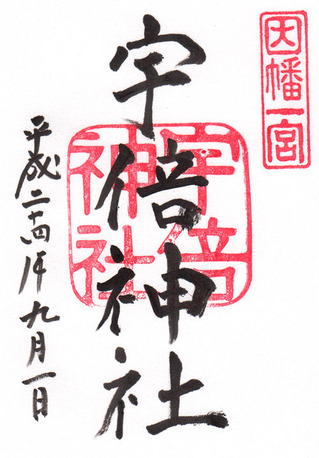 因幡一宮
宇倍神社
宇倍神社
平成二十四年九月一日